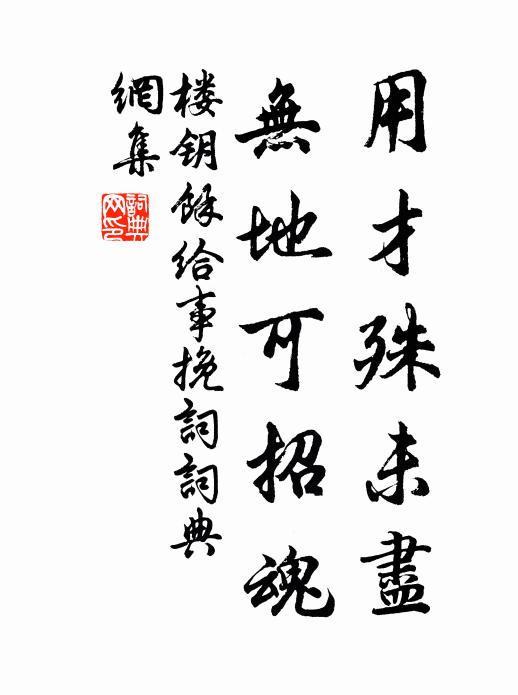 用才殊未盡
無地可招魂
楼钥餘给事挽詞詞典
網集
詞典网印